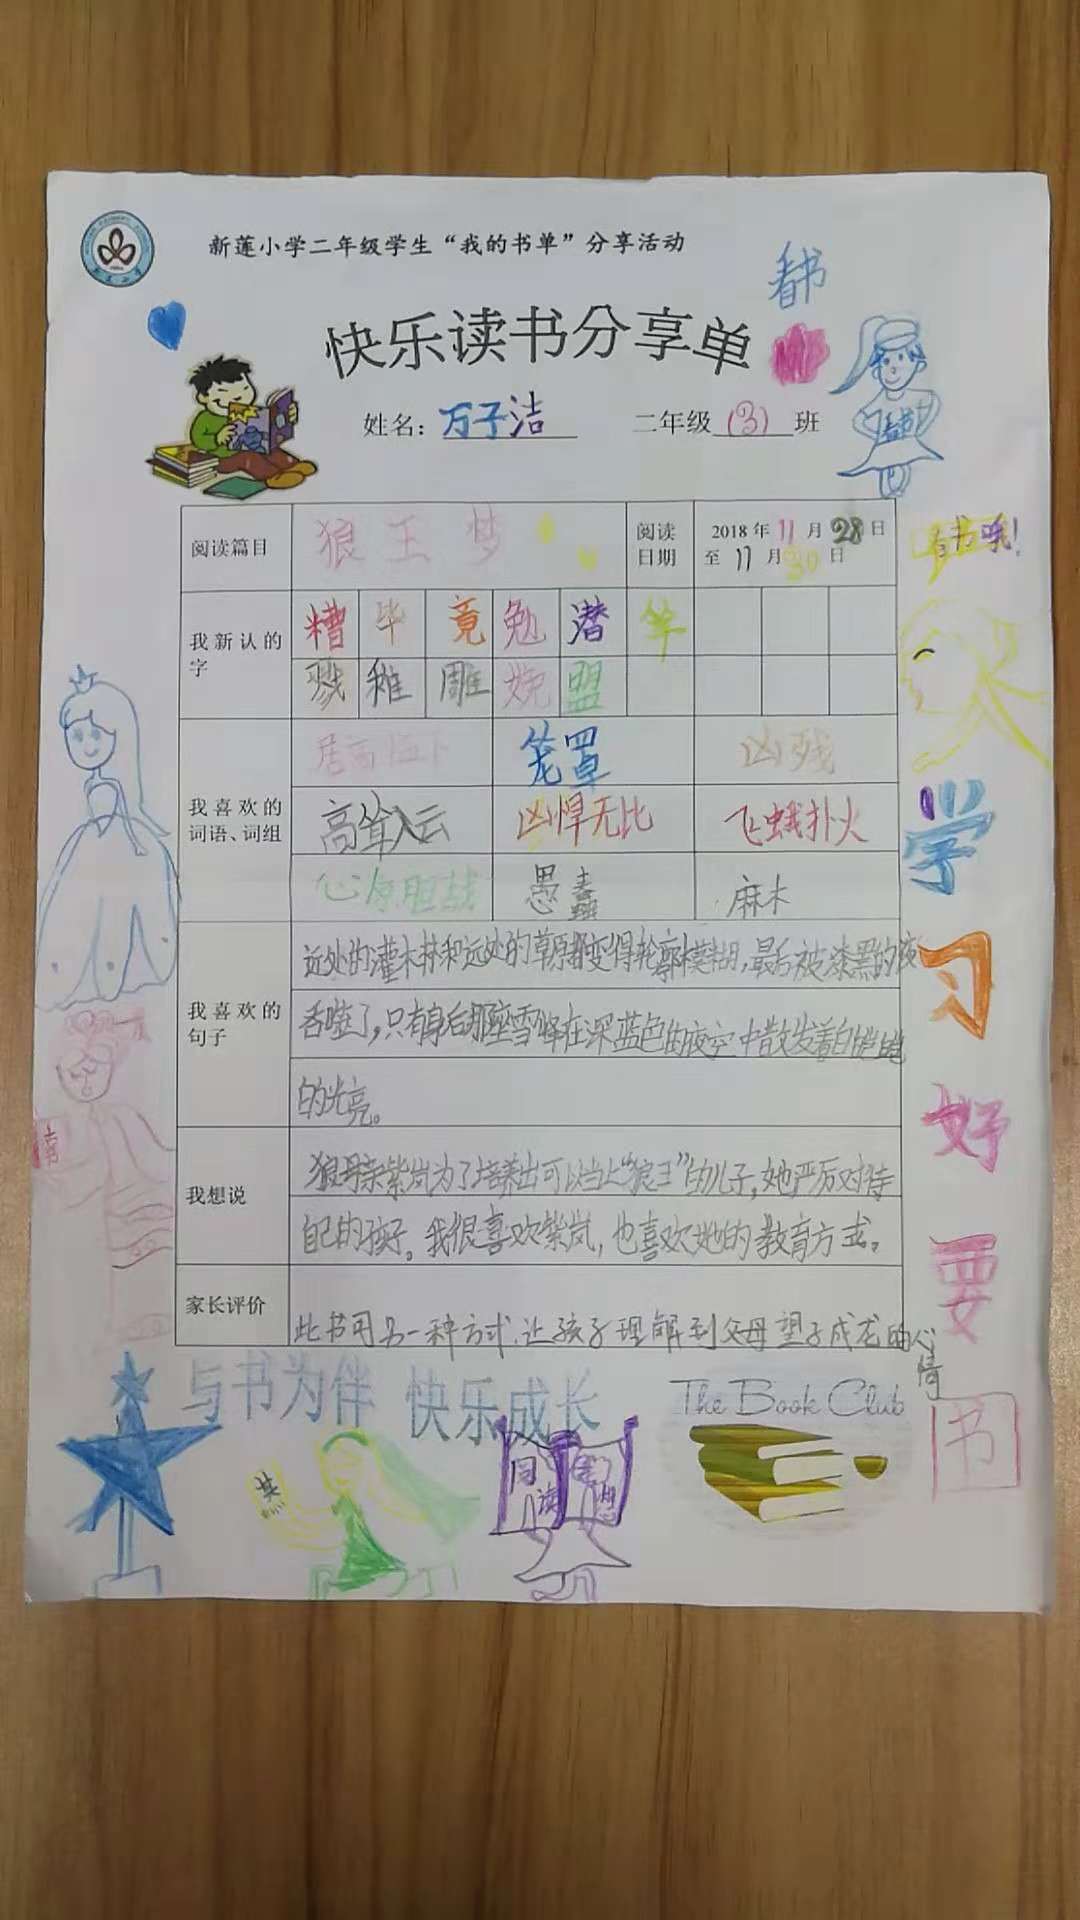 新莲小学二年级学生“我的书单”分享活动
看书
快乐读书分享单
姓名：万子洁 二年级（3）班
阅读篇目 狼王梦 阅读日期 2018年11月28日至11月30日
看书哦！
我新认的字 糟 毕 竟 勉 潜 竿
戮 稚 雕 娩 盟
我喜欢的词语、词组 居高临下 笼罩 凶残
高耸入云 凶悍无比 飞蛾扑火
心惊胆战 愚蠢 麻木
我喜欢的句子 近处的灌木林和远处的草原都变得轮廓模糊，最后被漆黑的夜
吞噬了，只有身后那座雪峰在深蓝色的夜空中散发着白皑皑
的光亮。
我想说 狼母亲紫岚为了培养出可以当上“狼王”的儿子，她严厉对待
自己的孩子。我很喜欢紫岚，也喜欢她的教育方式。
家长评价 此书用另一种方式，让孩子理解到父母望子成龙的心情
学习好要书
与书为伴 快乐成长
The Book Club
共
同读